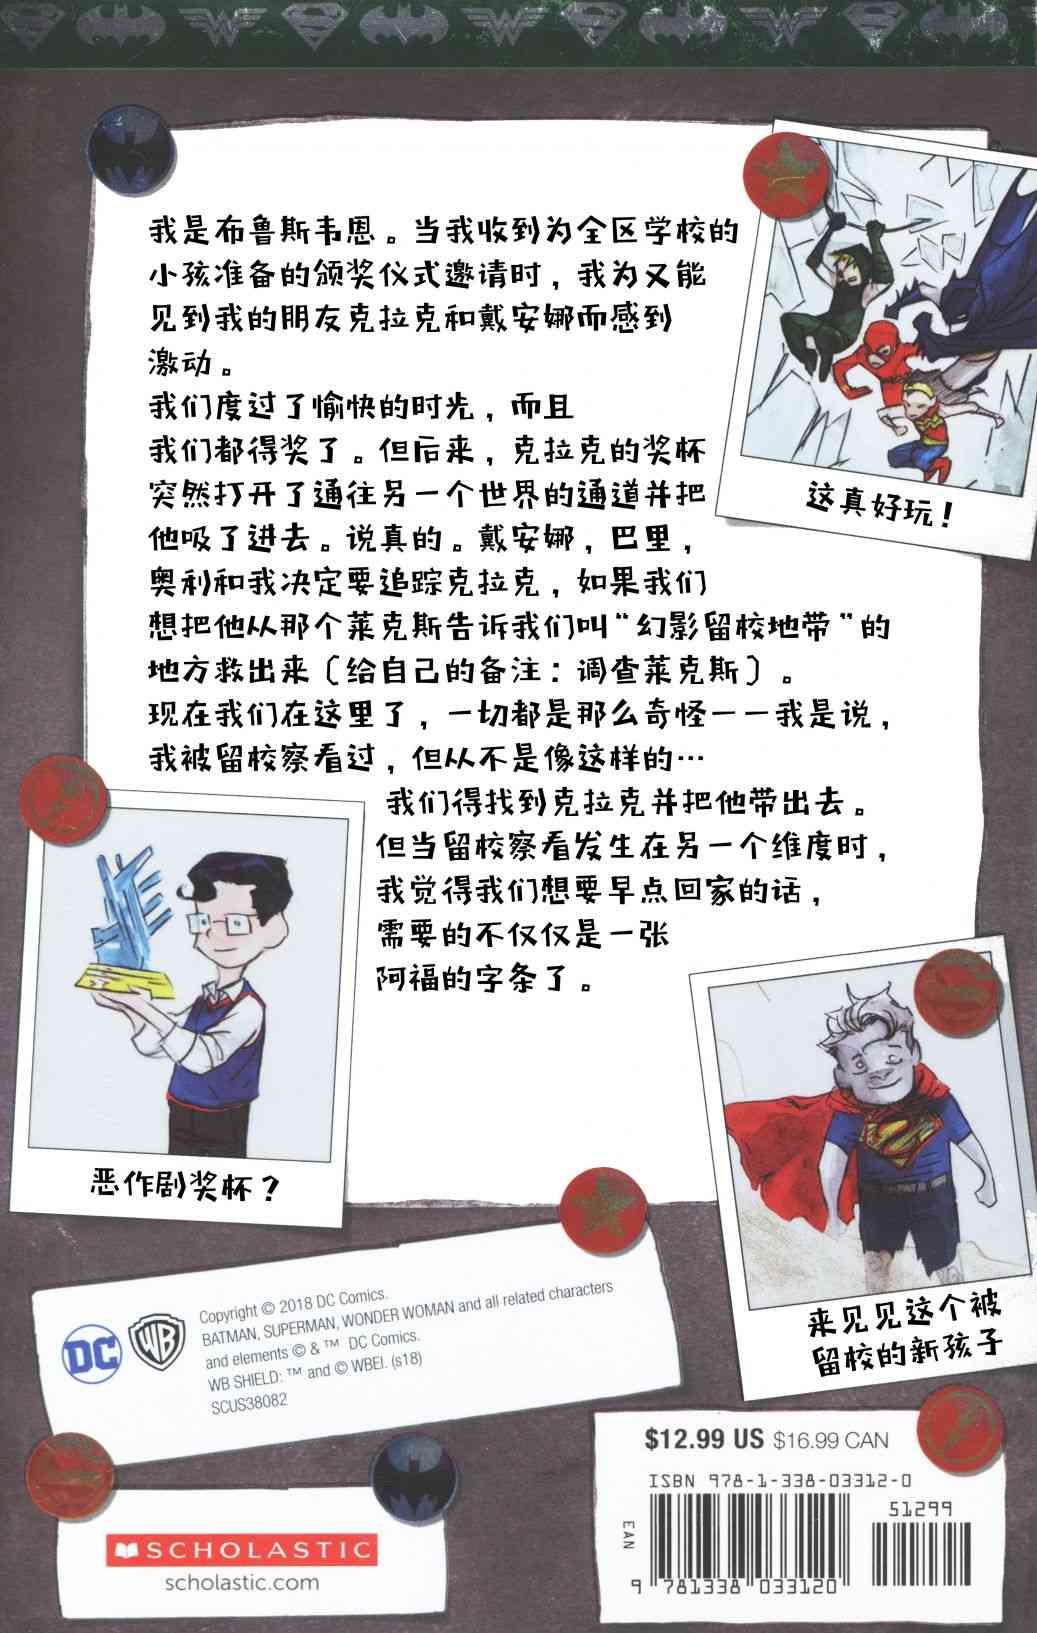 我是布鲁斯韦恩。当我收到为全区学校的
小孩准备的颁奖仪式邀请时，我为又能
见到我的朋友克拉克和戴安娜而感到
激动。
我们度过了愉快的时光，而且
我们都得奖了。但后来，克拉克的奖杯
突然打开了通往另一个世界的通道并把
他吸了进去。说真的。戴安娜，巴里，
奥利和我决定要追踪克拉克，如果我们
想把他从那个莱克斯告诉我们叫“幻影留校地带”的
地方救出来〔给自己的备注：调查莱克斯〕。
现在我们在这里了，一切都是那么奇怪——我是说，
我被留校察看过，但从不是像这样的…
我们得找到克拉克并把他带出去。
但当留校察看发生在另一个维度时，
我觉得我们想要早点回家的话，
需要的不仅仅是一张
阿福的字条了。
这真好玩！
恶作剧奖杯？
来见见这个被
留校的新孩子
DC
WB
Copyright © 2018 DC Comics.
BATMAN, SUPERMAN, WONDER WOMAN and all related characters
and elements © & ™ DC Comics.
WB SHIELD: ™ and © WBEI. (s18)
SCUS38082
$12.99 US $16.99 CAN
ISBN 978-1-338-03312-0
51299
EAN
9 781338 033120
SCHOLASTIC
scholastic.com